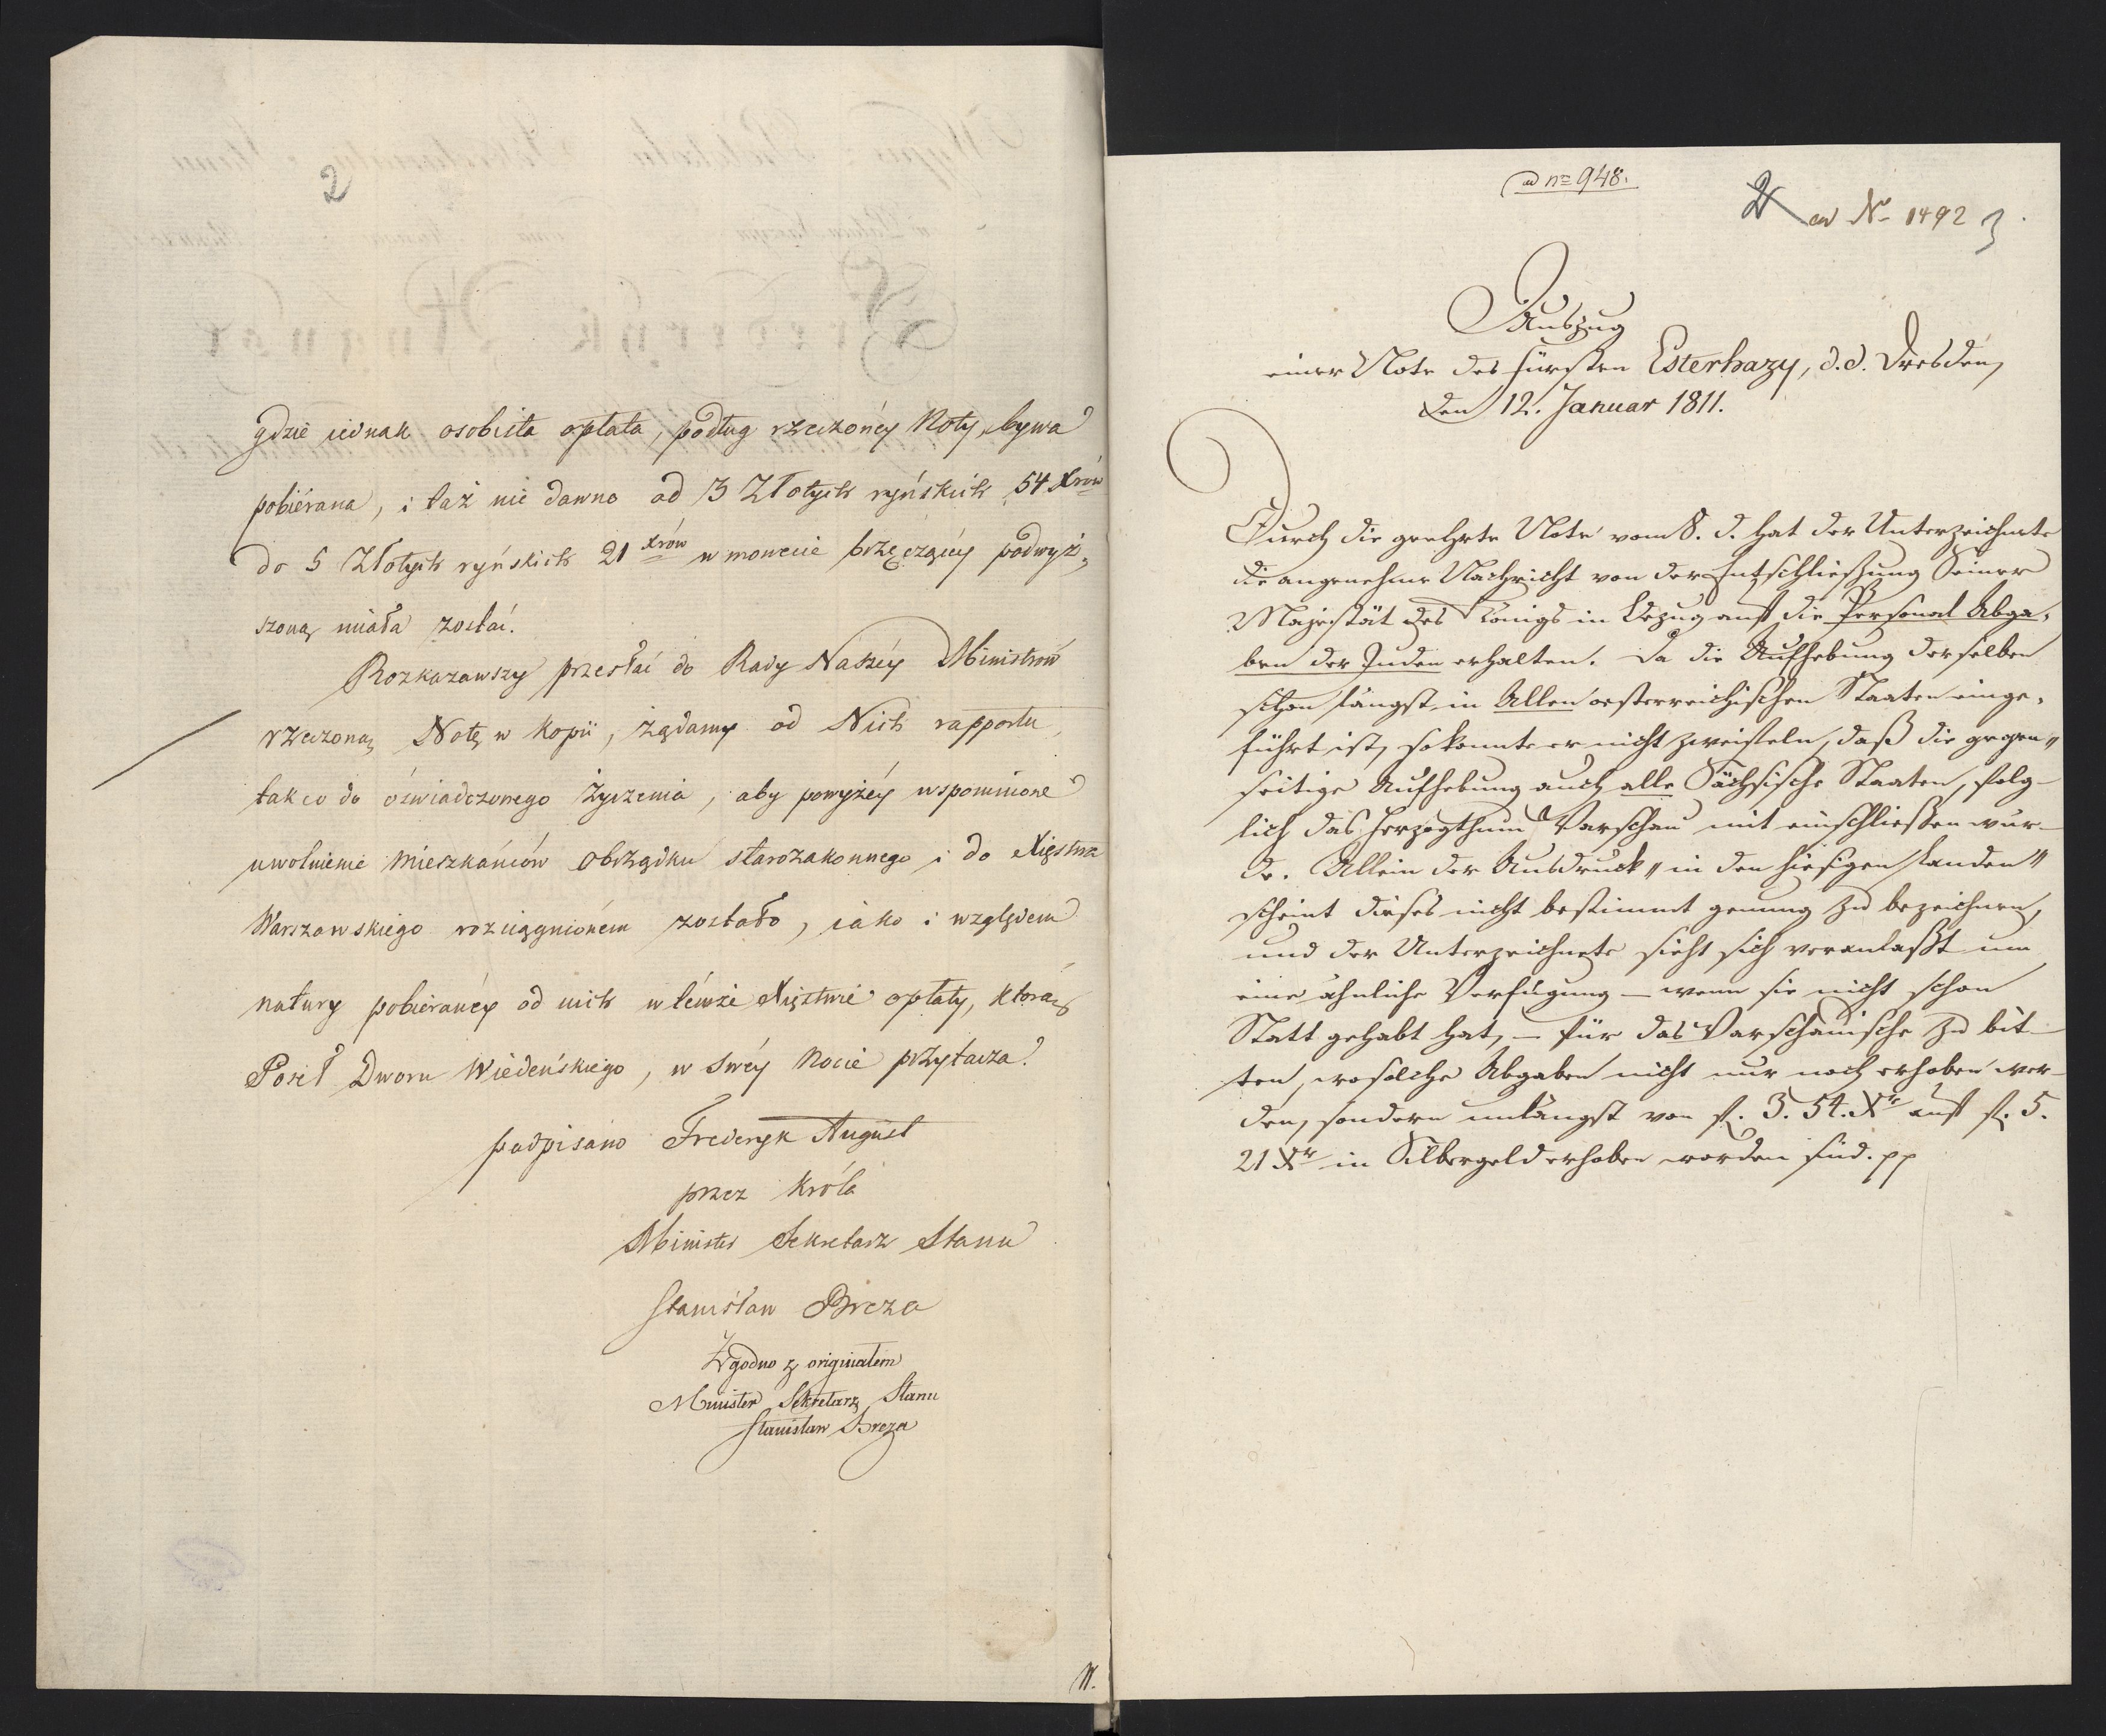 2
gdzie iednak osobista opłata, podług rzeczonéy Noty, bywa
pobiérana, i taż nie dawno od 3 Złotych ryńskich 54 Xrów
do 5 Złotych ryńskich 21 Xrów w monecie brzęczącéy podwyż„
szoną miała zostać.
Rozkazawszy przesłać do Rady Naszéy Ministrów
rzeczoną Notę w kopii, żądamy od Nich rapportu,
tak co do oświadczonego życzenia, aby powyżéy wspomnione
uwolnienie mieszkańców obrządku starozakonnego i do Xięstwa
Warszawskiego rozciągnioném zostało, iako i względem
natury pobieranéy od nich w témże Xięstwie opłaty, którą
Poseł Dworu Wiedeńskiego, w swéy Nocie przytacza.
podpisano Frederyk August
przez Króla
Minister Sekretarz Stanu
Stanisław Breza
Zgodno z originałem
Minister Sekretarz Stanu
Stanisław Breza
ad no 948.
2 ad No 1492 3
Auszug
einer Note des Fürsten Esterhazy, d. d. Dresden,
den 12. Januar 1811.
Durch die geehrte Note vom 8. d. hat der Unterzeichnete
die angenehme Nachricht von der Entschließung Seiner
Majestät des Königs in Bezug auf die Personal Abga„
ben der Juden erhalten. Da die Aufhebung derselben
schon längst in Allen oesterreichischen Staaten einge„
führt ist, so konnte er nicht zweifeln, daß die gegen„
seitige Aufhebung auch alle Sächsische Staaten, folg-
lich das Herzogthum Warschau mit einschließen wür-
de. Allein der Ausdruck „in den hiesigen Landen"
scheint dieses nicht bestimmt genung zu bezeichnen,
und der Unterzeichnete sieht sich veranlaßt um
eine ähnliche Verfügung – wenn sie nicht schon
Statt gehabt hat, – für das Warschauische zu bit-
ten, wo solche Abgaben nicht nur noch erhoben wer-
den, sondern unlängst von fl. 3. 54. Xr auf fl. 5.
21 Xr in Silbergeld erhoben worden sind. pp